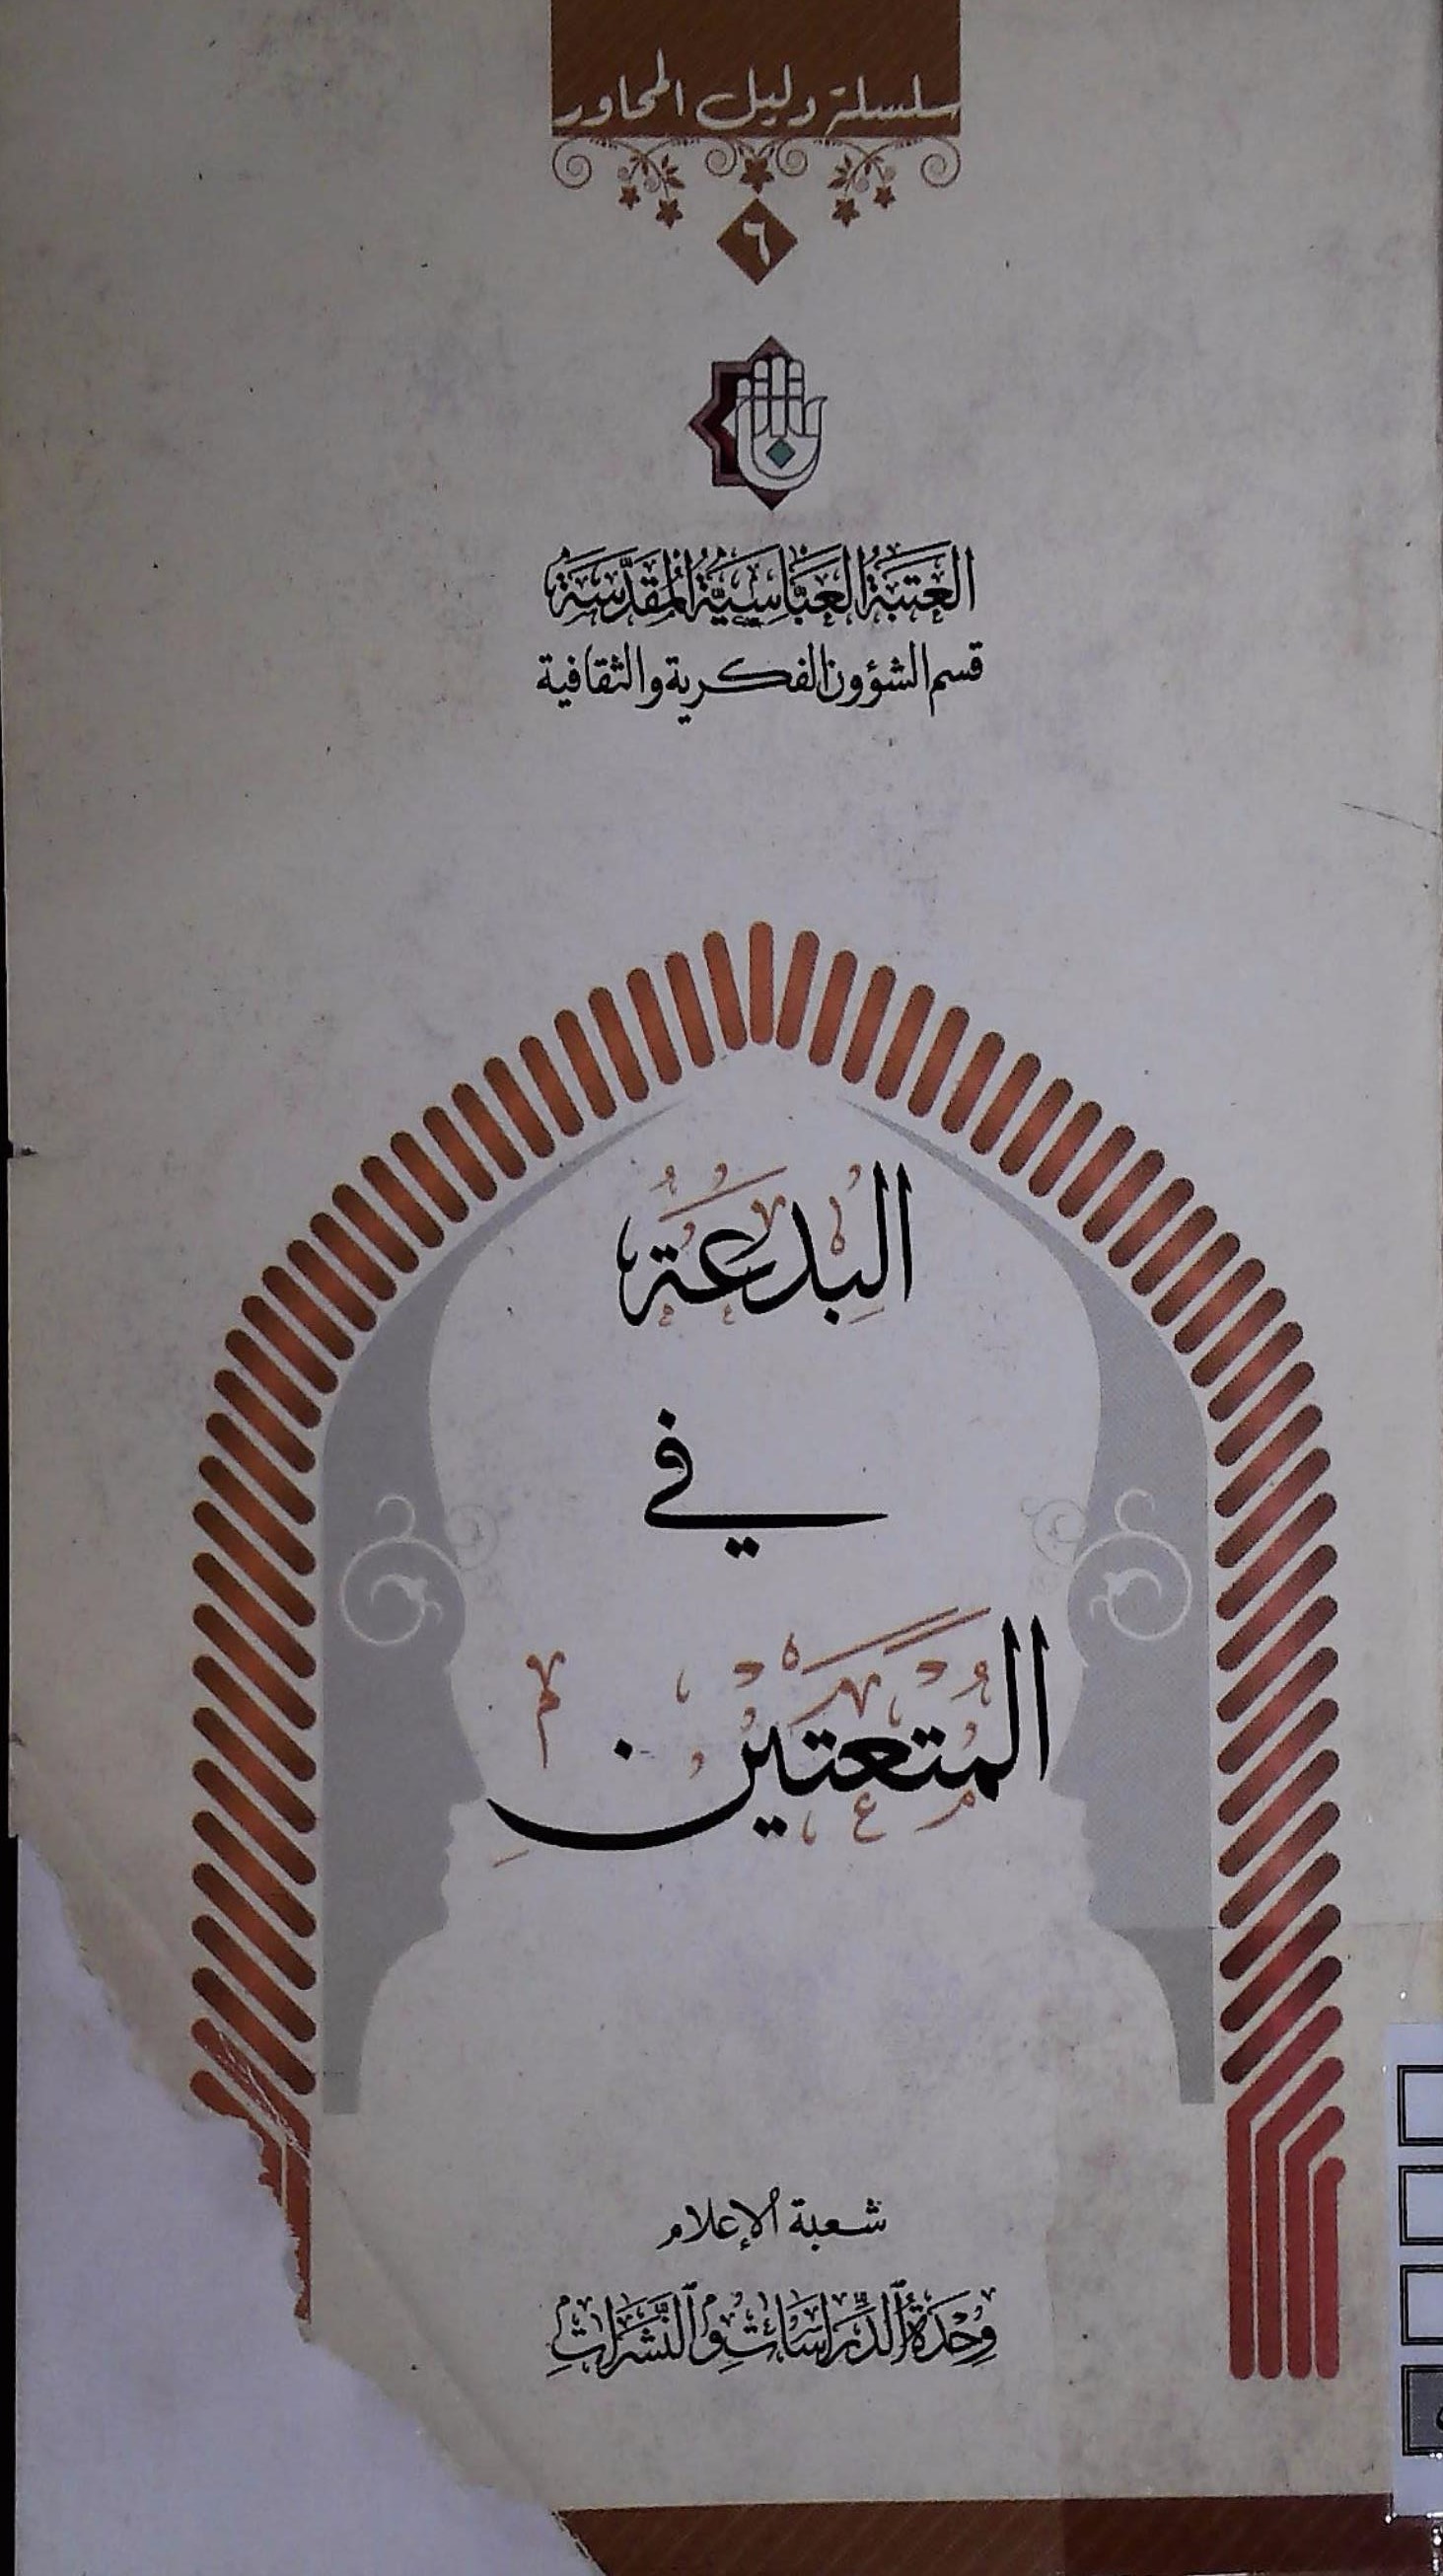 سلسلة دليل المحاور
٦
العَتَبَةُ العَبَّاسِيَّةُ المُقَدَّسَةُ
قسم الشؤون الفكرية والثقافية
البِدْعَةُ
في
المُتْعَتَيْنِ
شعبة الإعلام
وَحْدَةُ الدِّرَاسَاتِ وَالنَّشَرَاتِ